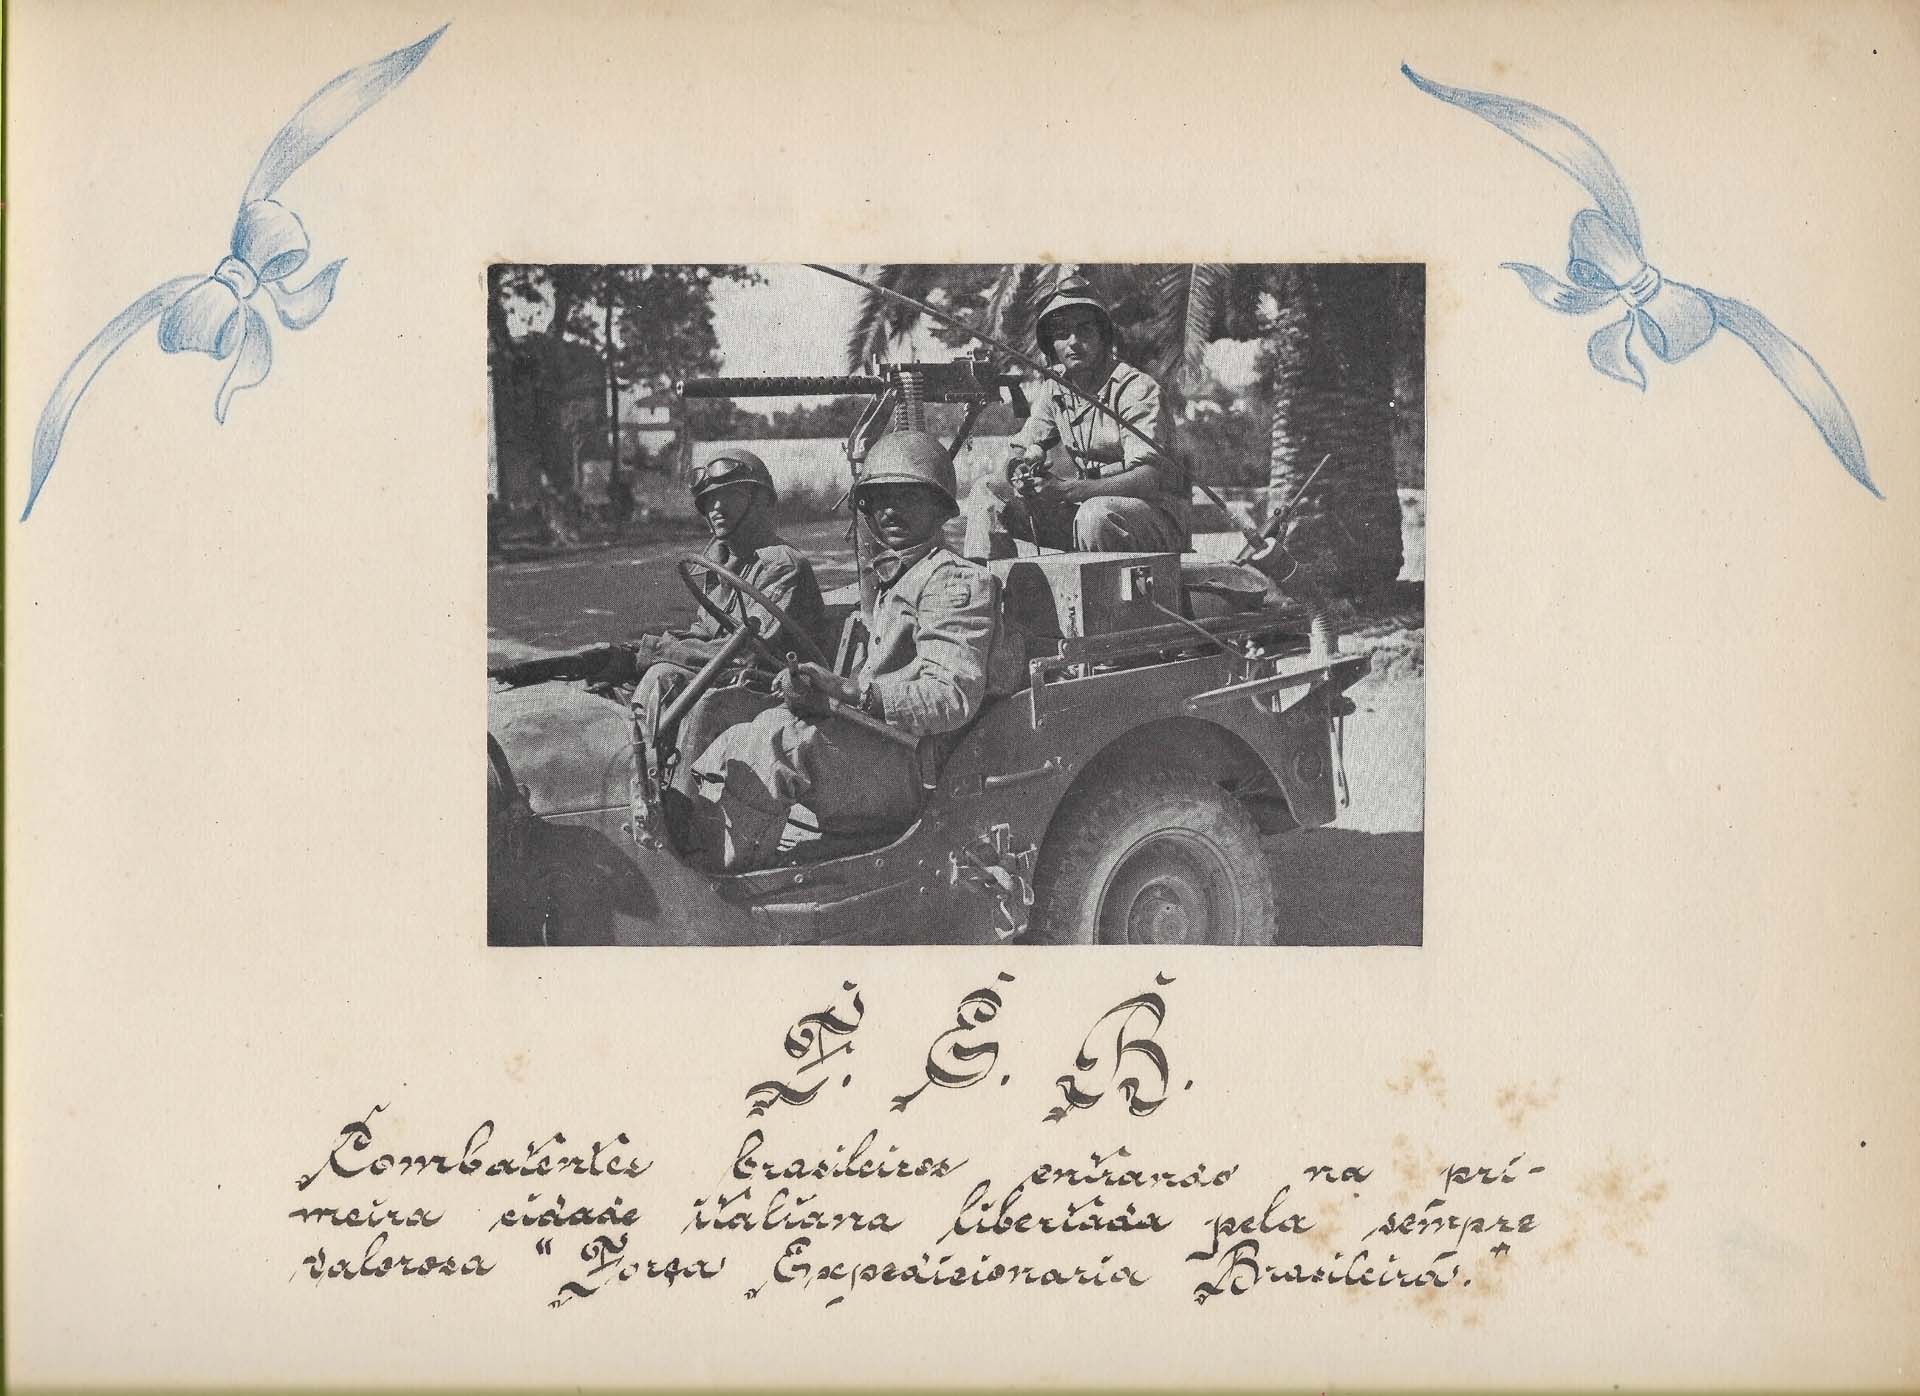 F. E. B.
Combatentes brasileiros entrando na pri-
meira cidade italiana libertada pela sempre
valorosa "Força Expedicionaria Brasileira."